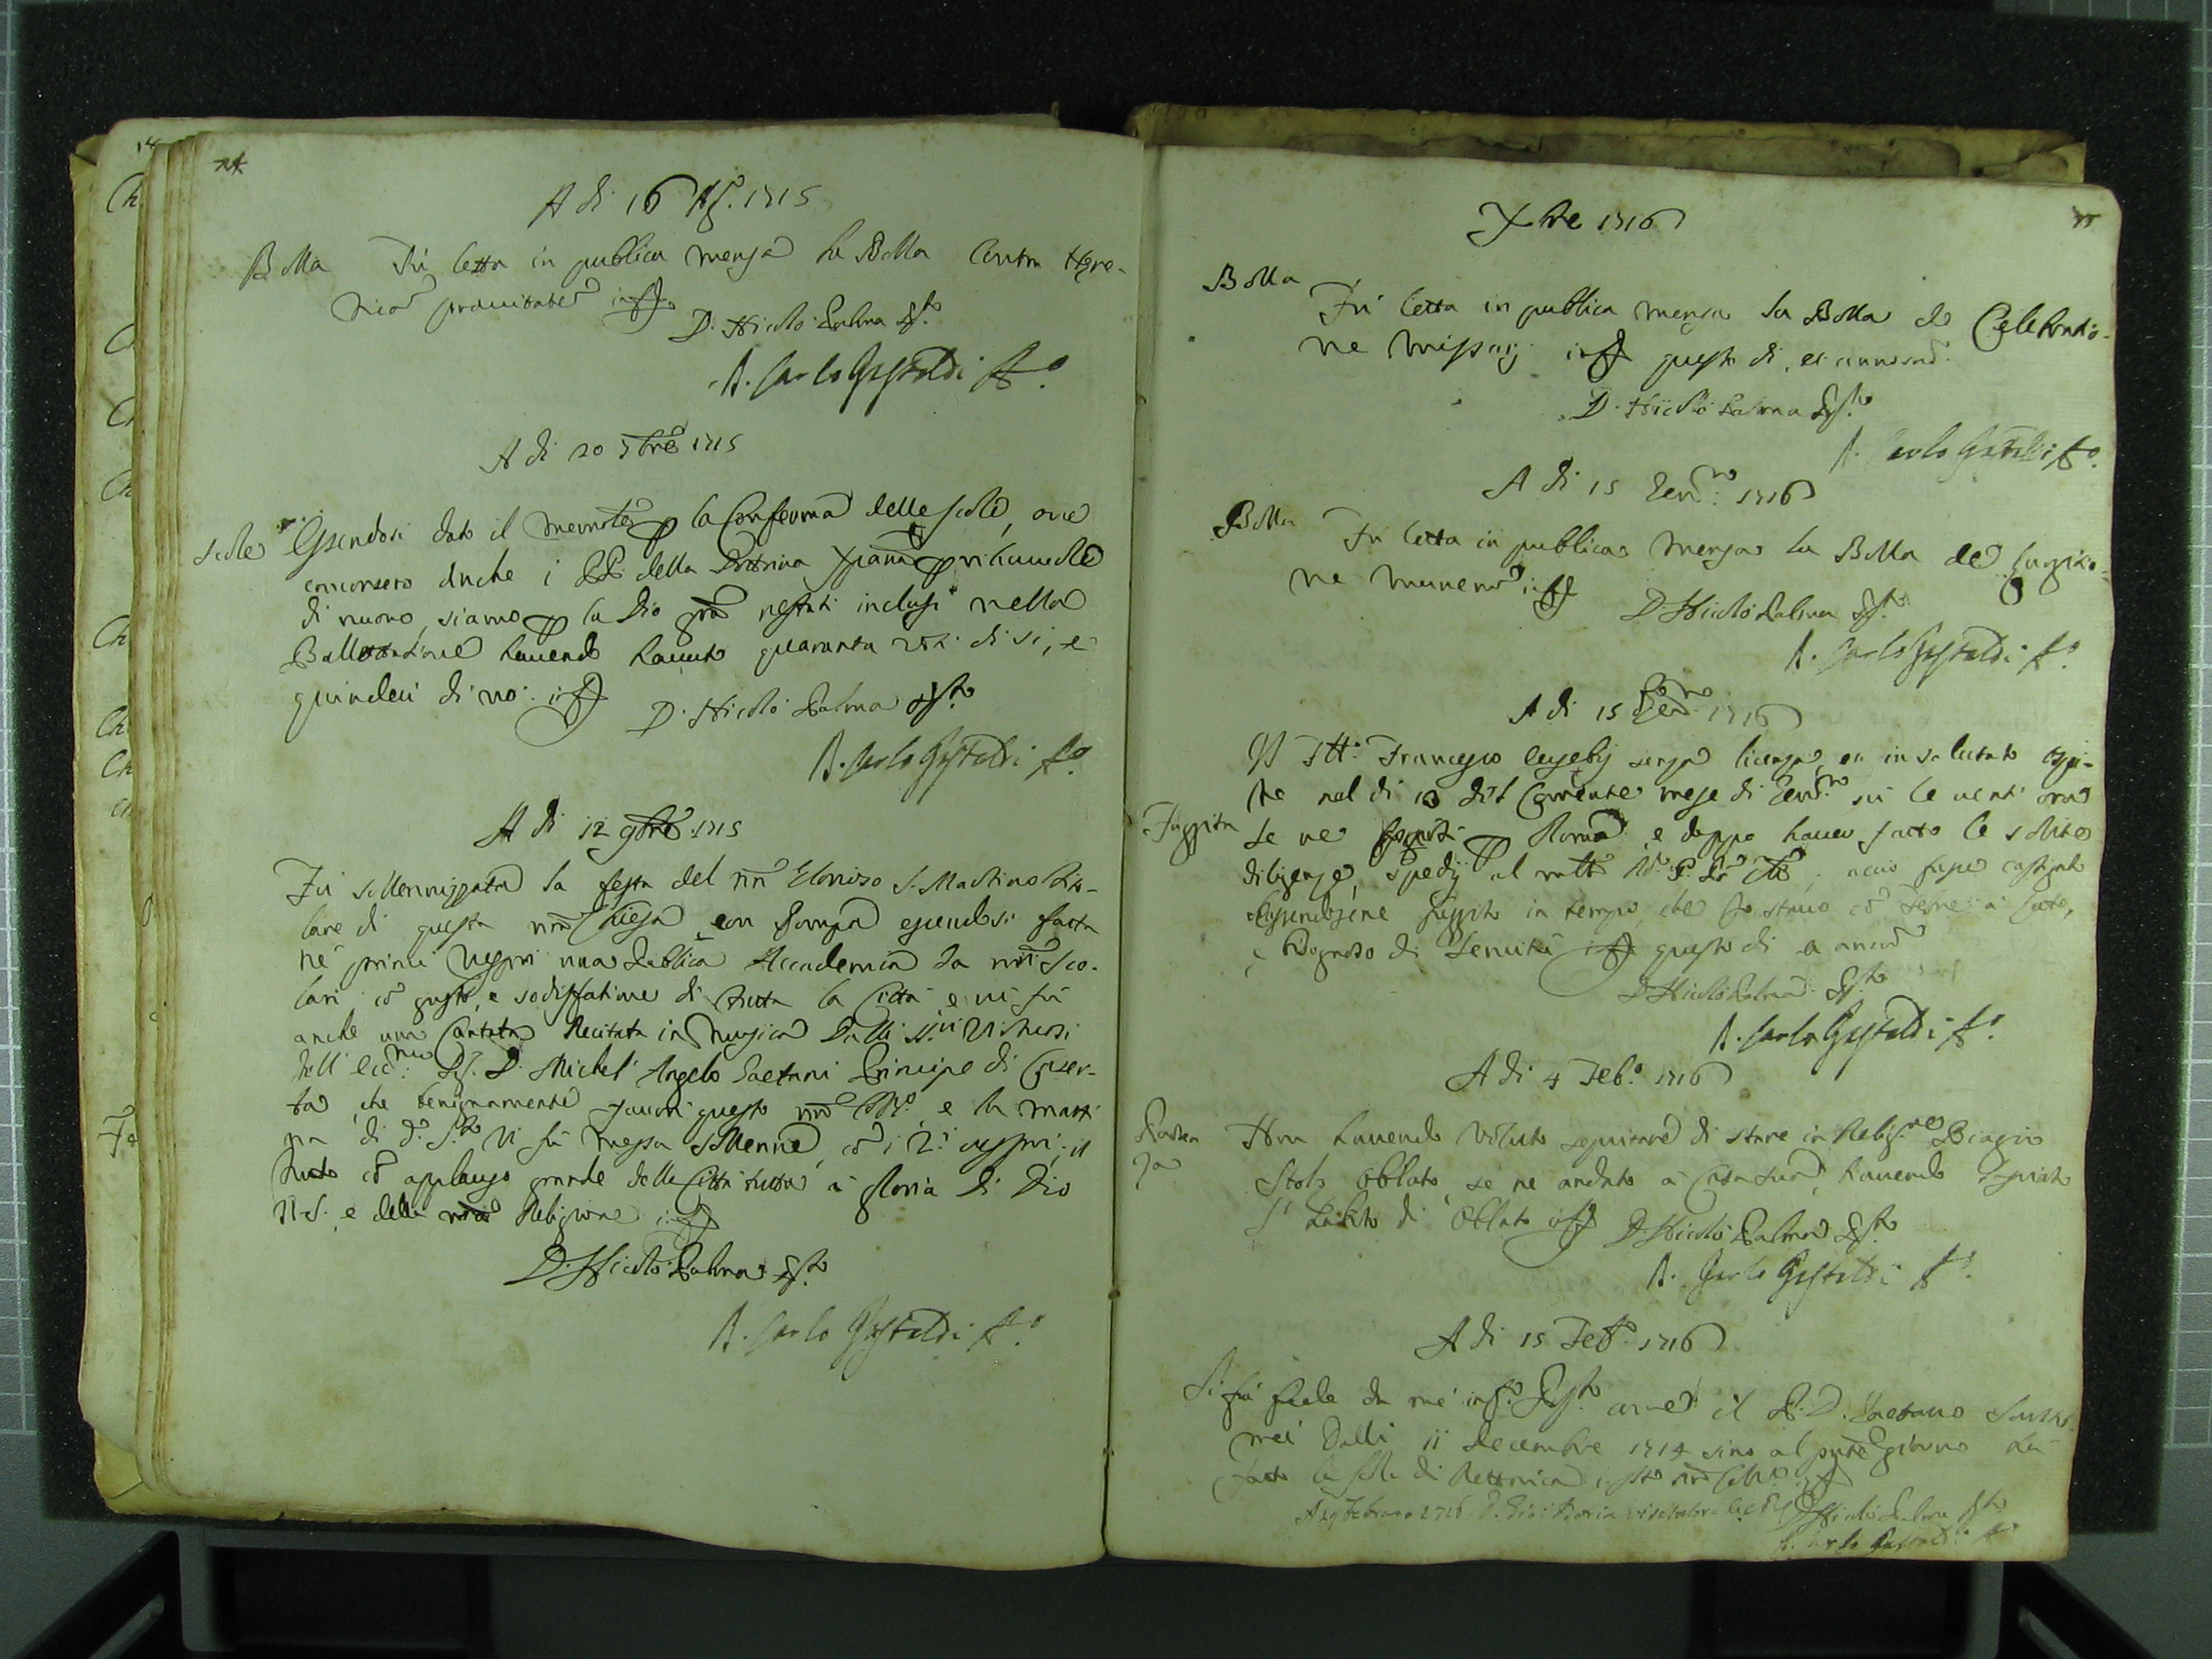 A di 16 Ag.º 1715
Bolla Fù letta in publica mensa la Bolla Contra Here-
ticã prauitatẽ in fe
D. Nicolò Palma Att.º
D. Carlo Gastaldi Att.º
A di 20 7bre 1715
Scole Essendosi dato il memoriale p la Conferma delle scole, oue
concorsero anche i PP. della Dottrina Xpiana p rihauerle
di nuouo, siamo p la Dio grã restati inclusi nella
Ballottatione hauendo hauuto quaranta uoti di si, e
quindeci di nò. in fe D. Nicolò Palma Att.º
D. Carlo Gastaldi Att.º
A di 12 9bre 1715
Fù sollennizzata la festa del nrõ Glorioso S. Martino tito-
lare di questa nrã Chiesa con Pompa essendosi fatta
nè primi Vespri una Publica Accademia da nrĩ Sco-
lari cõ gusto, e sodisfatione di tutta la Città e ui fù
anche una Cantata Recitata in musica Dalli SS.ri Virtuosi
dell' Ecc.mo Sig. D. Michel' Angelo Gaetani Principe di Caser-
ta, che benignamente fauorì questo nrõ Coll.º e la matti
na di d.º S.to Vi fù messa sollenne, cõ i 2.i uespri, il
tutto cõ applauso grande della Città tutta à gloria di Dio
N.S. e della nrã Religione in fe
D. Nicolò Palma Att.º
D. Carlo Gastaldi Att.º
Xbre 1716
Bolla
Fù letta in publica mensa la Bolla de Celebratio-
ne missarũ in fe questo dì, et anno sud.
D. Nicolò Palma Att.º
D. Carlo Gastaldi Att.º
A di 15 Genn.ro 1716
Bolla Fù letta in publica mensa la Bolla de largitio-
ne munerũ in fe D. Nicolò Palma Att.º
D. Carlo Gastaldi Att.º
A di 15 Genn.ro 1716
Il Francesco senza licenza, et insalutato hospi-
te nel di 10 del Corrente mese di Genn.ro sù le uenti ore
Fuggita se ne fuggì p Roma, e doppo hauer fatto le solite
diligenze, spedij al castigato
Essendosene fuggito in tempo, che Io stauo cõ febre à letto,
e bisognoso di seruitù in fe questo dì e anno
D. Nicolò Palma Att.º
D. Carlo Gastaldi Att.º
A di 4 Feb.º 1716
Parten
za
Non hauendo Voluto seguitare di stare in Relig.ne Biagio
Oblato, se ne andato à Casa sua, hauendo
l' habito di Oblato in fe D. Nicolò Palma Att.º
D. Carlo Gastaldi Att.º
A di 15 Feb.º 1716
Si fà fede da me inf.º Att.º come il P. D. Gaetano
Dalli 11 Decembre 1714 sino al pnte giorno hà
fatto la scola di Rettorica in q.sto nrõ Coll.º in fe
A 19 Febraro 1716 D. Doria visitatore D. Nicolò Palma Att.º
D. Carlo Gastaldi Att.º